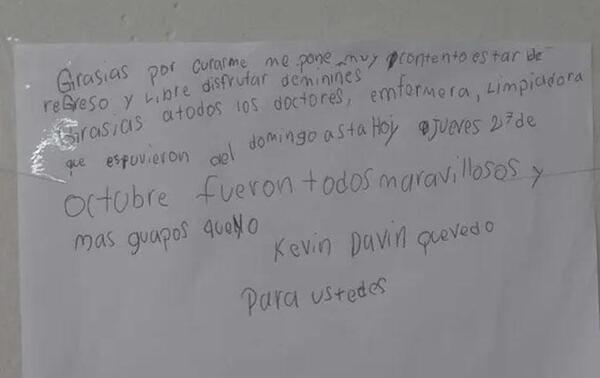 Grasias por curarme me pone muy contento estar de
reGreso y Libre disfrutar deminines
Grasias atodos los doctores, emfermera, Limpiadora
que espuvieron del domingo asta Hoy Jueves 27 de
octubre fueron todos maravillosos y
mas guapos que yo
Kevin Davin quevedo
Para ustedes